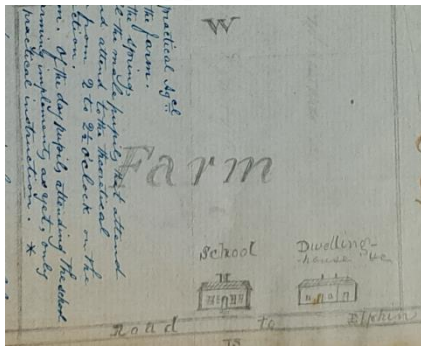 W
Farm
School
Dwelling-
house &c
Road to Elphin
practical Agrl
the farm.
the spring
the male pupils that attend
and attend to the theoretical
from 2 to 2½ o'Clock on the
of the day pupils attending the school
farming implements as yet, only
practical instruction. *